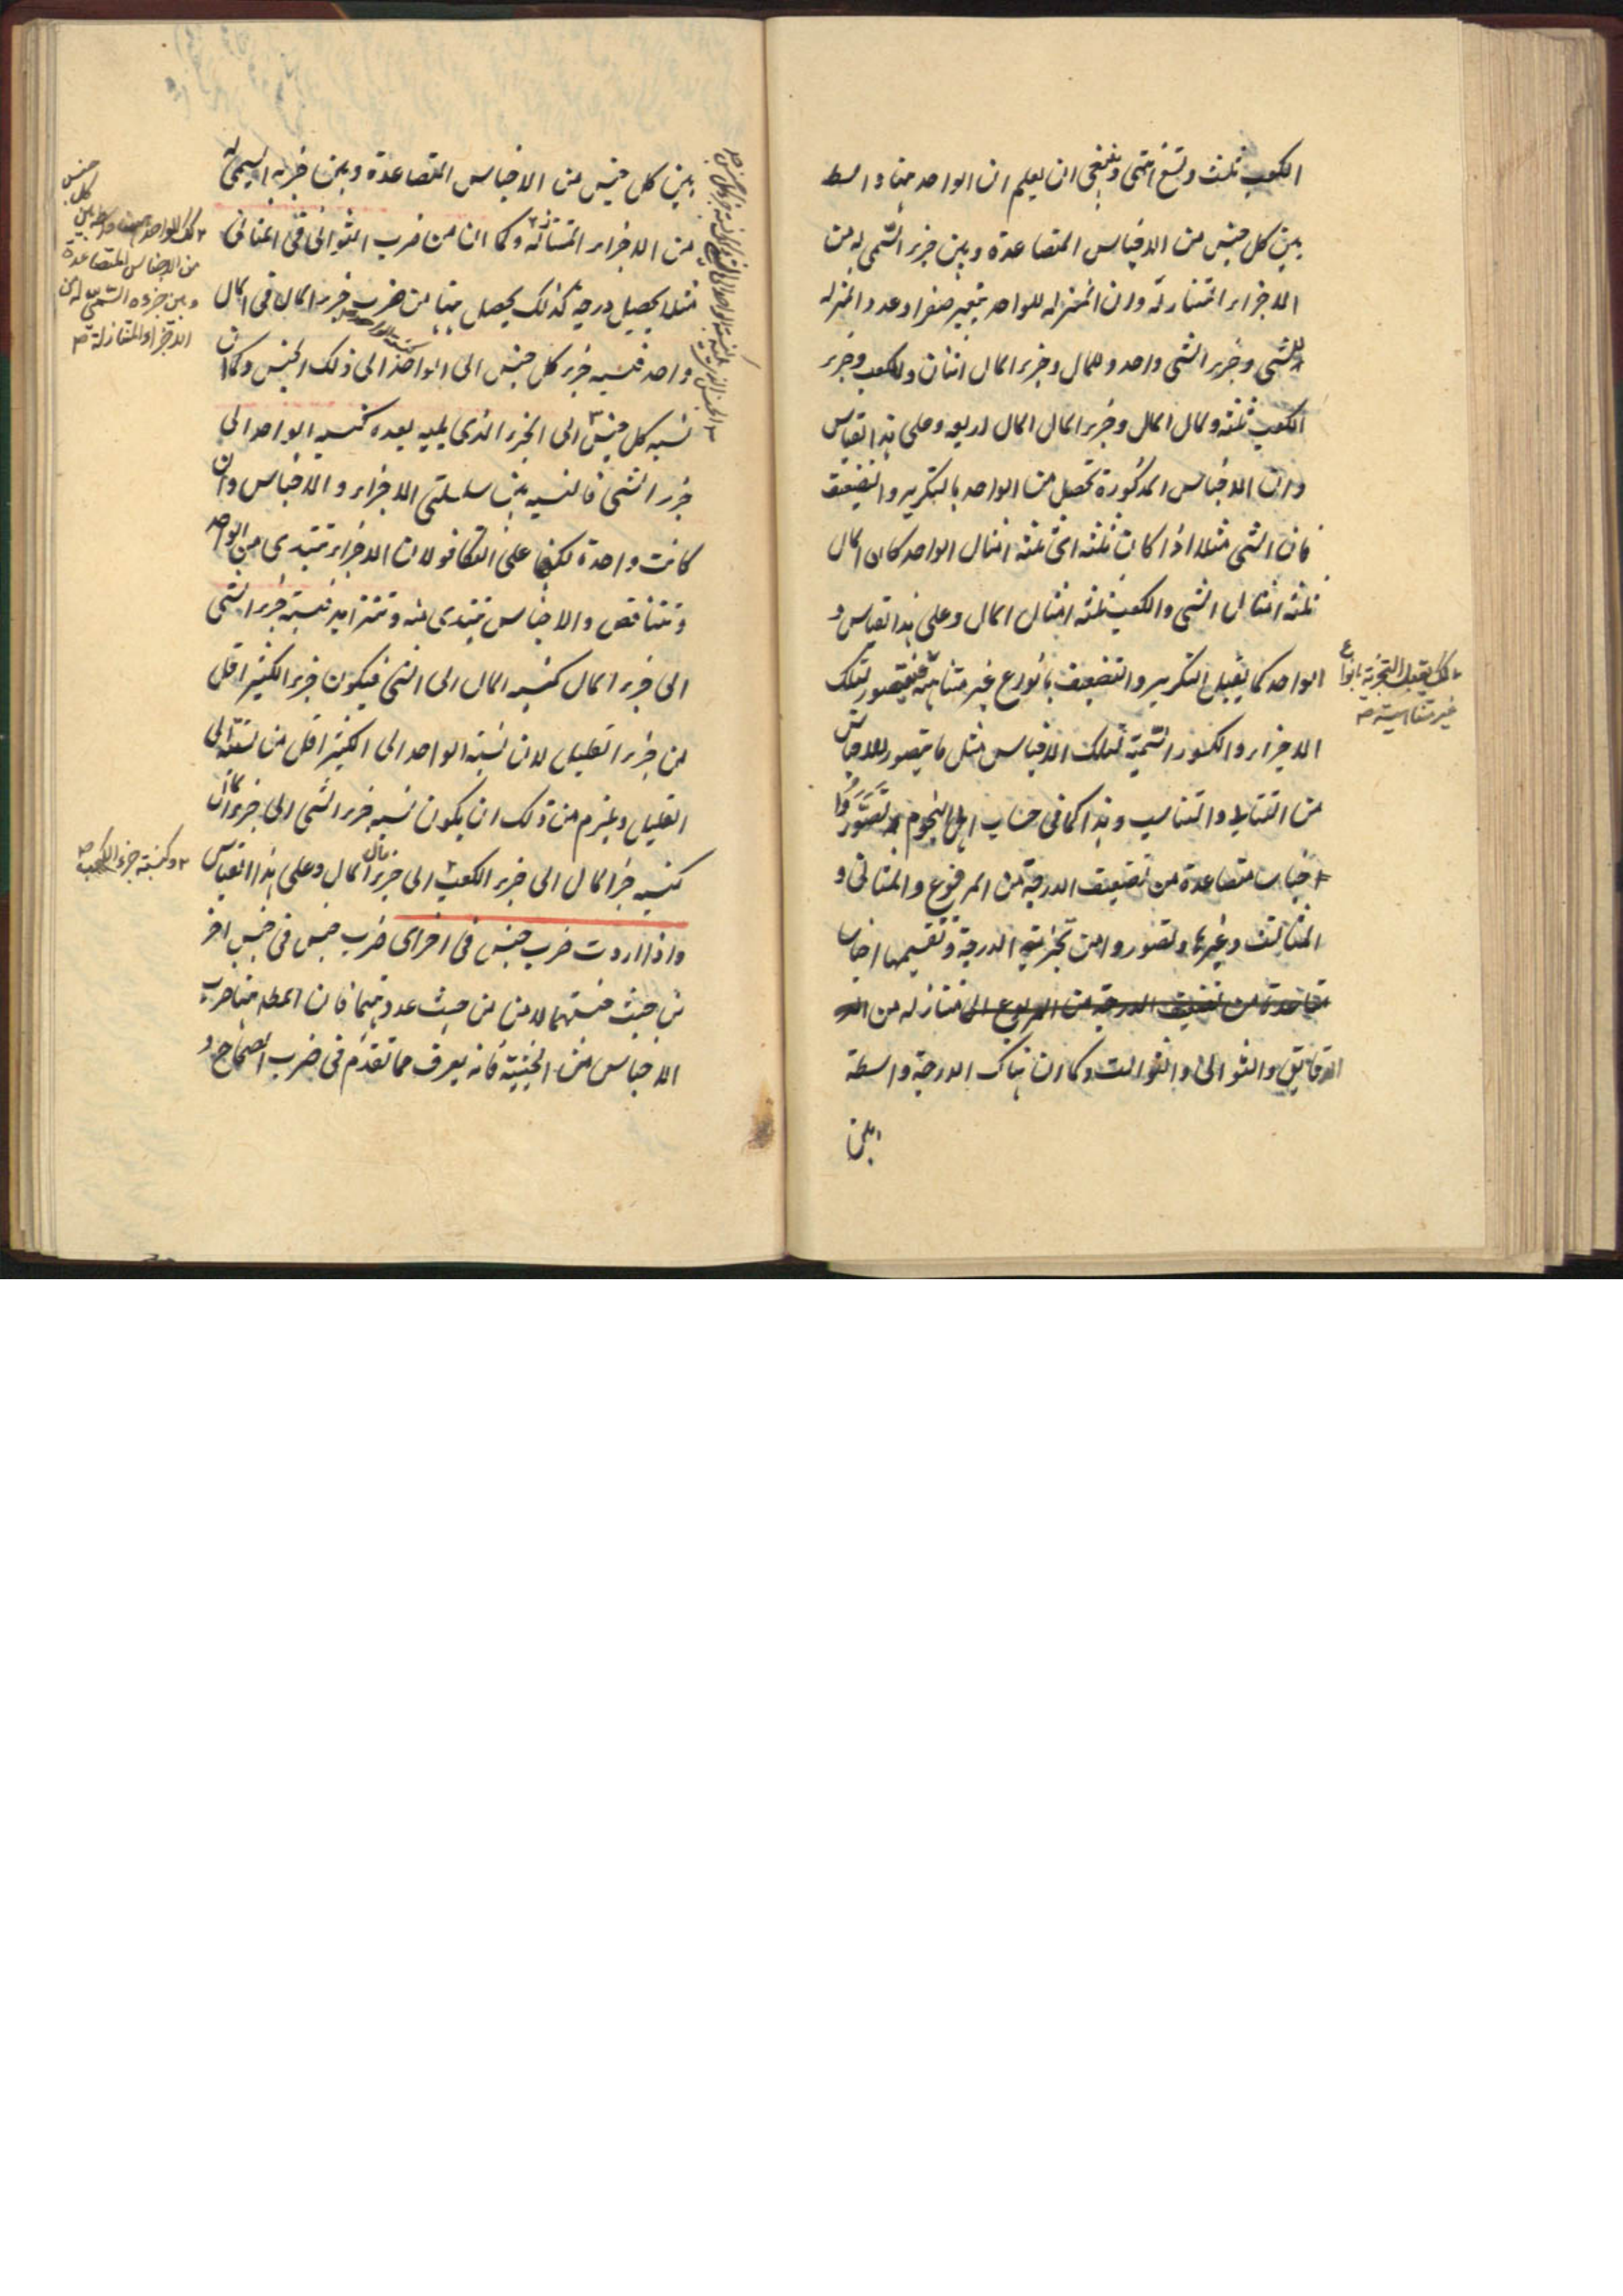 الكعب ثلث وتسع اثمتى وينبغى ان يعلم ان الواحد هنا واسط
بين كل جنس من الاجناس المتصاعدة وبين جزء السمى له من
الاجزاء المتنازلة وان المنزلة للواحد تعتبر صفرا وعدد المنزله
للشى وجزء الشى واحد وللمال وجزء المال اثنان وللكعب وجزء
الكعب ثلثه ولمال المال وجزء المال المال اربعه وعلى هذا القياس
وان الاجناس المذكورة تحصل من الواحد بالتكرير والتضعيف
فان الشى مثلا اذا كان ثلثه اى ثلثه امثال الواحد كان المال
ثلثه امثال الشى والكعب ثلثه امثال المال وعلى هذا القياس و
الواحد كما يقبل التكرير والتضعيف بانواع غير متناهية فيتصور لتلك
كك يقبل التجزية بانواع
غير متناهية صح
الاجزاء والكسور السمية لتلك الاجناس مثل ما يتصور للاجناس
من التقابل والتناسب وهذا كما فى حساب اهل النجوم تصوروا
اجناسا متصاعدة من تضعيف الدرجة من المرفوع والمثانى و
المثالث وغيرها وتصوروا من تجزية الدرجة وتقسيمها اجناسا
متصاعدة من تضعيف الدرجة من المرفوع الى متنازله من الد
الدقايق والثوانى والثوالث وكما ان هناك الدرجة واسطة
بين
بين كل جنس من الاجناس المتصاعدة وبين جزئه السمى له
كك الواحد هنا واسطة بين كل جنس
من الاجناس المتصاعدة
وبين جزءه السمى له من
الاجزاء المتنازلة صح
من الاجزاء المتنازله وكما ان من ضرب الثوانى فى المثانى
مثلا يحصل درجة كذلك يحصل هنا من ضرب جزء المال فى المال
واحد فنسبه جزء كل جنس الى الواحد كنسبة الواحد الى ذلك الجنس وكما ان
نسبه كل جنس الى الجزء الذى يليه بعده كنسبه الواحد الى
جزء الشى فالنسبه بين سلسلتى الاجزاء والاجناس وان
كانت واحدة لكنها على التكافو لان الاجزاء تبتدى من الواحد
وتتناقص والاجناس تبتدى منه وتتزايد فنسبة جزء الشى
الى جزء المال كنسبه المال الى الشى فيكون جزء الكثير اقل
من جزء القليل لان نسبة الواحد الى الكثير اقل من نسبته الى
القليل ويلزم من ذلك ان يكون نسبه جزء الشى الى جزء المال
كنسبه جزء المال الى جزء الكعب الى جزء مال المال وعلى هذا القياس
وكنسبة جزء الكعب صح
واذا اردت ضرب جنس فى اخر اى ضرب جنس فى جنس اخر
من حيث جنسيتهما لا من حيث عددهما فان المط هنا ضرب
الاجناس من الجنسية فانه يعرف مما تقدم فى ضرب الصحاح و